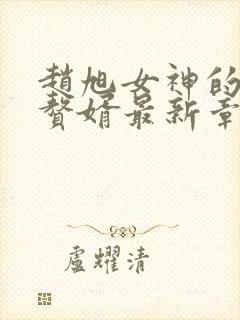 趙旭女神的
贅婿最新章
盧耀清